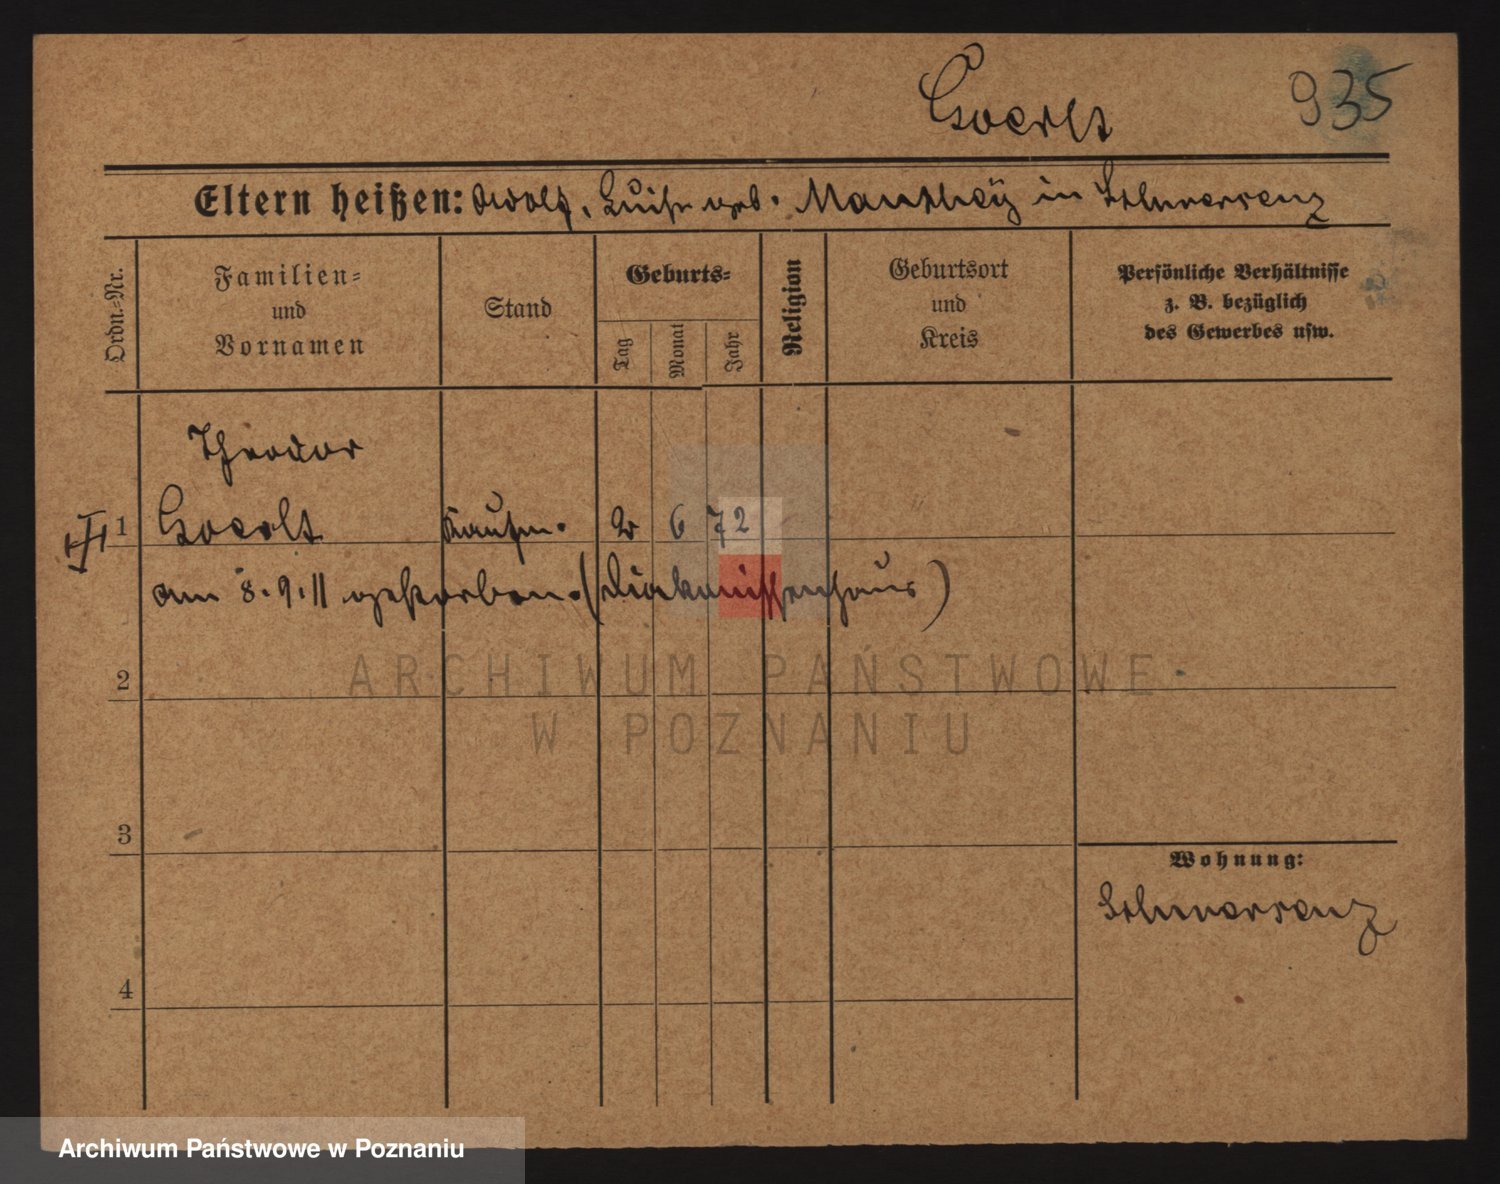 Goerlt 935
Eltern heißen: Adolf, Luise geb. Manthey in Schwersenz
Ordn.=Nr.
Familien=
und
Vornamen
Stand
Geburts=
Tag
Monat
Jahr
Religion
Geburtsort
und
Kreis
Persönliche Verhältnisse
z. B. bezüglich
des Gewerbes usw.
Theodor
1 Goerlt Kaufm. 2 6 72
am 8.9.11 gestorben. (Diakonissenhaus)
2
ARCHIWUM PAŃSTWOWE
W POZNANIU
3
Wohnung:
Schwersenz
4
Archiwum Państwowe w Poznaniu